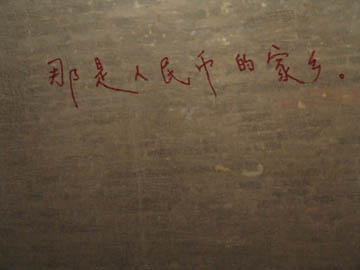 那是人民币的家乡。